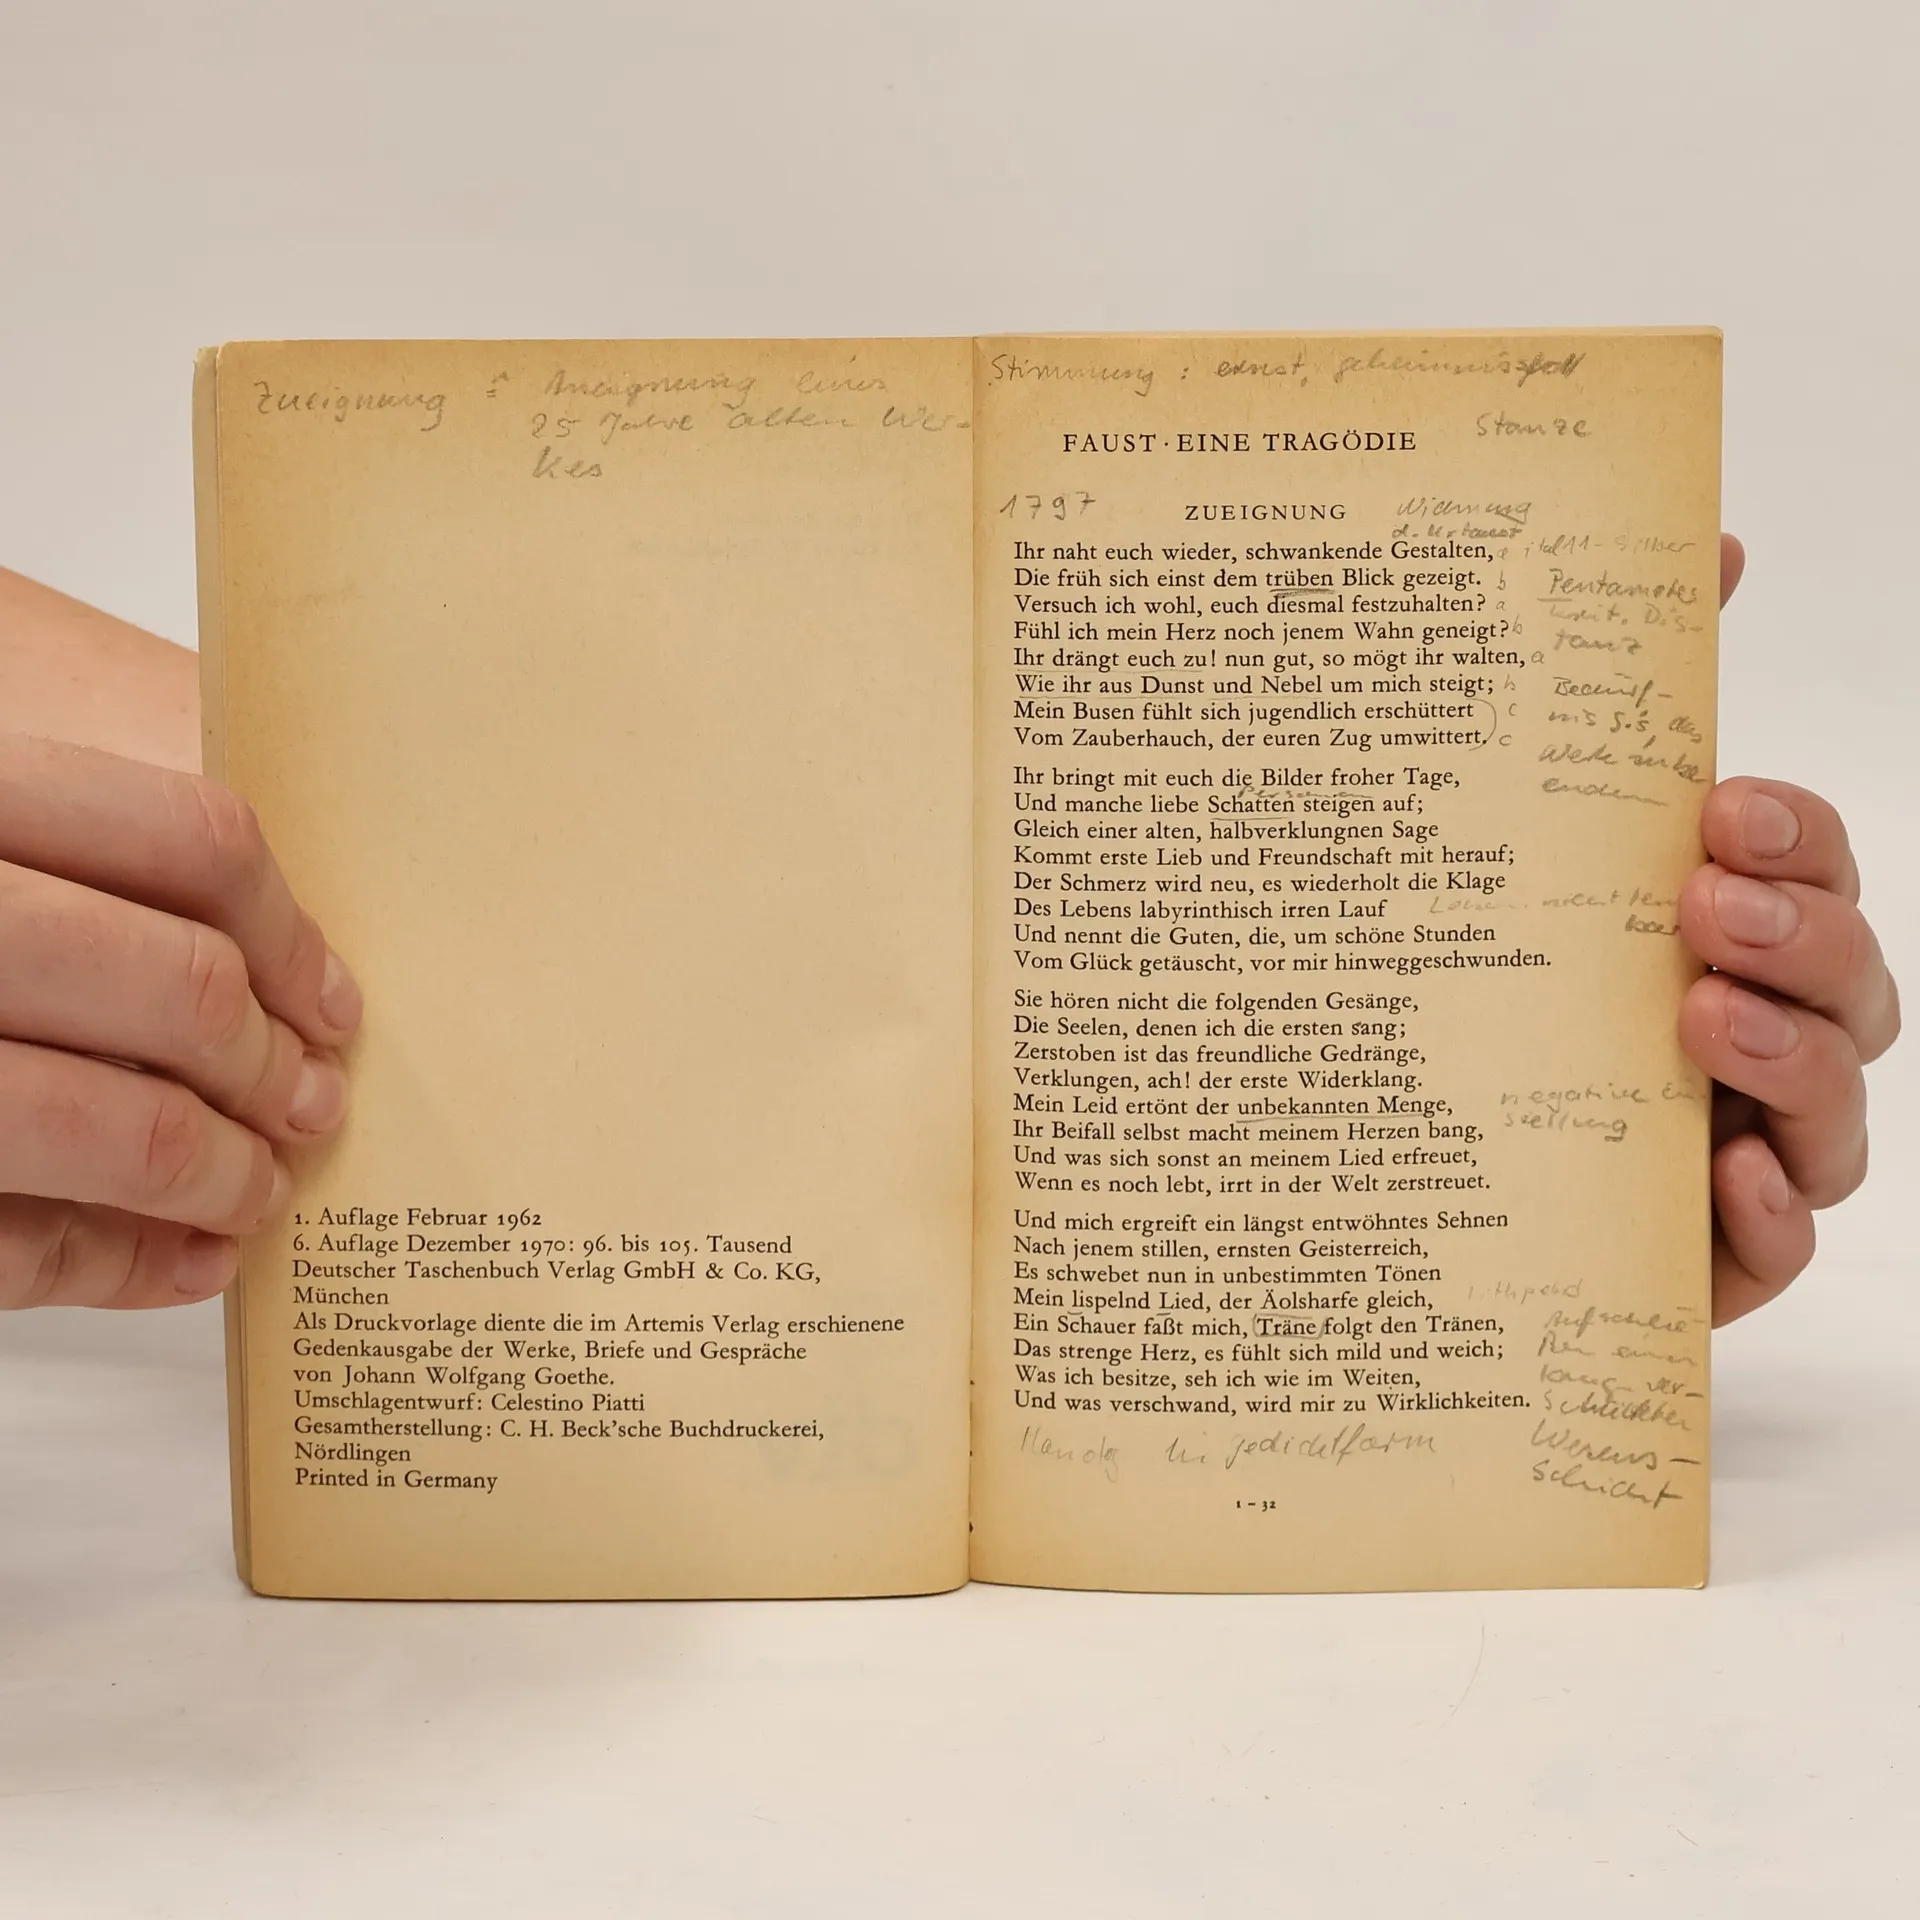 Zueignung ≙ Aneignung eines
25 Jahre alten Wer-
kes
1. Auflage Februar 1962
6. Auflage Dezember 1970: 96. bis 105. Tausend
Deutscher Taschenbuch Verlag GmbH & Co. KG,
München
Als Druckvorlage diente die im Artemis Verlag erschienene
Gedenkausgabe der Werke, Briefe und Gespräche
von Johann Wolfgang Goethe.
Umschlagentwurf: Celestino Piatti
Gesamtherstellung: C. H. Beck'sche Buchdruckerei,
Nördlingen
Printed in Germany
Stimmung: ernst, geheimnisvoll
Stanze
FAUST · EINE TRAGÖDIE
1797 ZUEIGNUNG Widmung
d. Urfaust
Ihr naht euch wieder, schwankende Gestalten, a ital 11-Silber
Die früh sich einst dem trüben Blick gezeigt. b Pentameter
Versuch ich wohl, euch diesmal festzuhalten? a krit. Dis-
Fühl ich mein Herz noch jenem Wahn geneigt? b tanz
Ihr drängt euch zu! nun gut, so mögt ihr walten, a
Wie ihr aus Dunst und Nebel um mich steigt; b Bedürf-
Mein Busen fühlt sich jugendlich erschüttert c nis G.'s, das
Vom Zauberhauch, der euren Zug umwittert. c Werk
enden
Ihr bringt mit euch die Bilder froher Tage,
Personen
Und manche liebe Schatten steigen auf;
Gleich einer alten, halbverklungnen Sage
Kommt erste Lieb und Freundschaft mit herauf;
Der Schmerz wird neu, es wiederholt die Klage
Des Lebens labyrinthisch irren Lauf nicht
bar
Und nennt die Guten, die, um schöne Stunden
Vom Glück getäuscht, vor mir hinweggeschwunden.
Sie hören nicht die folgenden Gesänge,
Die Seelen, denen ich die ersten sang;
Zerstoben ist das freundliche Gedränge,
Verklungen, ach! der erste Widerklang.
Mein Leid ertönt der unbekannten Menge, negative Ein-
Ihr Beifall selbst macht meinem Herzen bang, stellung
Und was sich sonst an meinem Lied erfreuet,
Wenn es noch lebt, irrt in der Welt zerstreuet.
Und mich ergreift ein längst entwöhntes Sehnen
Nach jenem stillen, ernsten Geisterreich,
Es schwebet nun in unbestimmten Tönen
Mein lispelnd Lied, der Äolsharfe gleich,
Ein Schauer faßt mich, Träne folgt den Tränen, Aufschlie-
Das strenge Herz, es fühlt sich mild und weich; ßen einer
Was ich besitze, seh ich wie im Weiten, lang ver-
Und was verschwand, wird mir zu Wirklichkeiten. schütteten
Wesens-
schicht
Monolog in Gedichtform
1 – 32